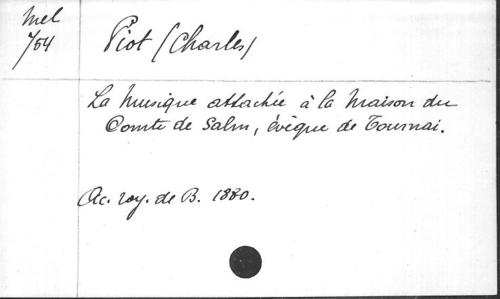 Mel
704
Piot (Charles)
La Musique attachée à la Maison du
Comte de Salm, évêque de Tournai.
Ac. roy. de B. 1880.